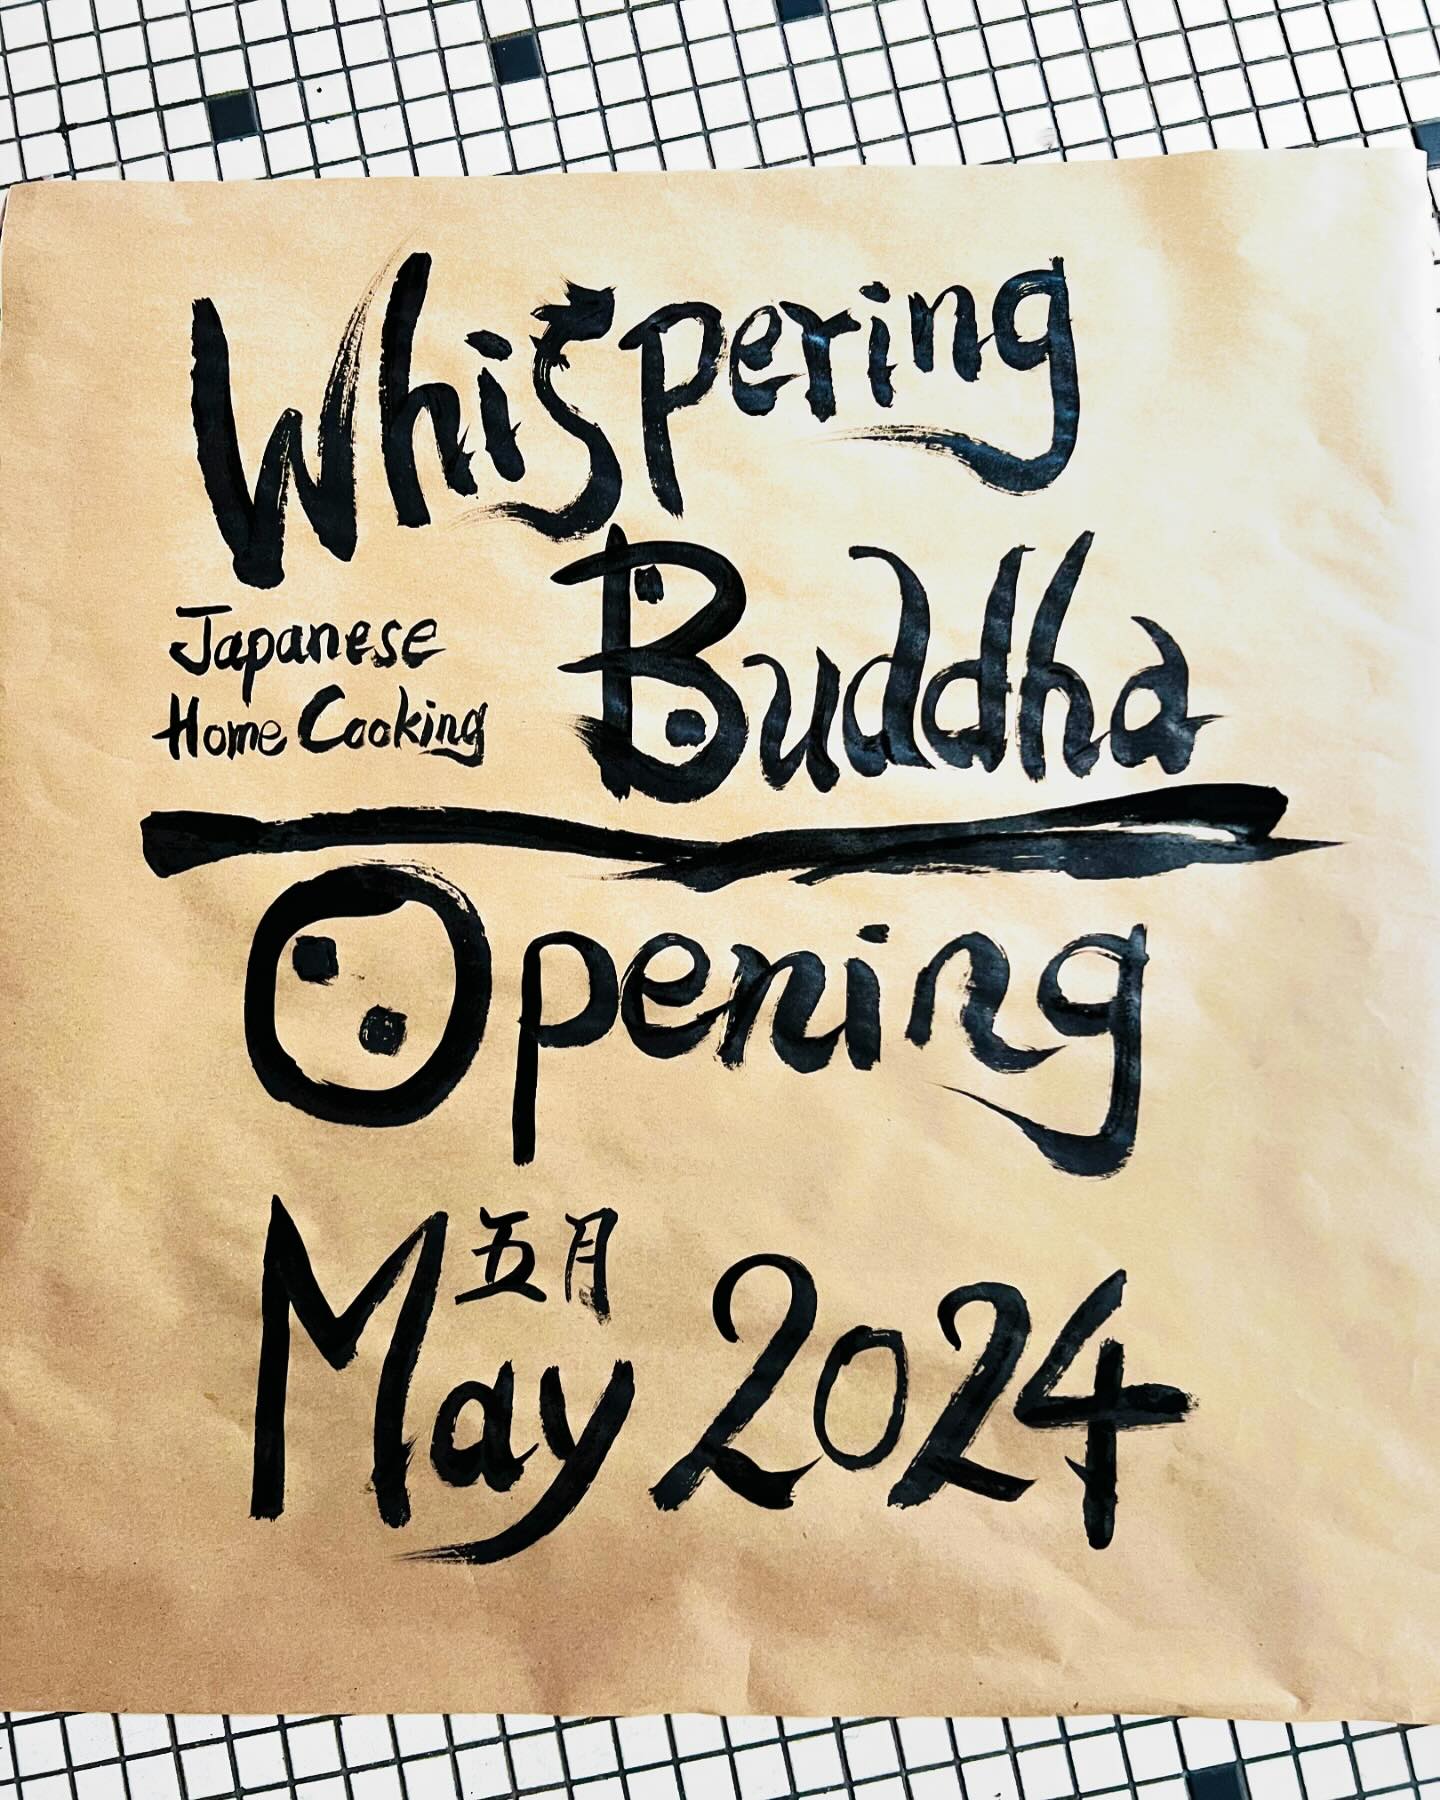 Whispering
Buddha
Japanese
Home Cooking
Opening
五月
May 2024